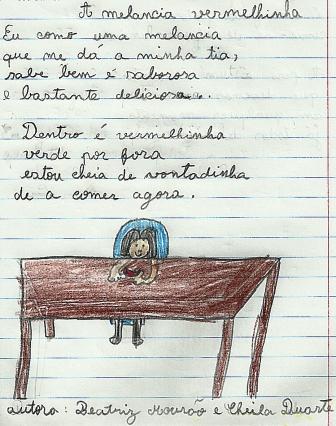 A melancia vermelhinha
Eu como uma melancia
que me dá a minha tia,
sabe bem é saborosa
e bastante deliciosa.
Dentro é vermelhinha
verde por fora
estou cheia de vontadinha
de a comer agora.
autora: Beatriz Mourão e Cheila Duarte